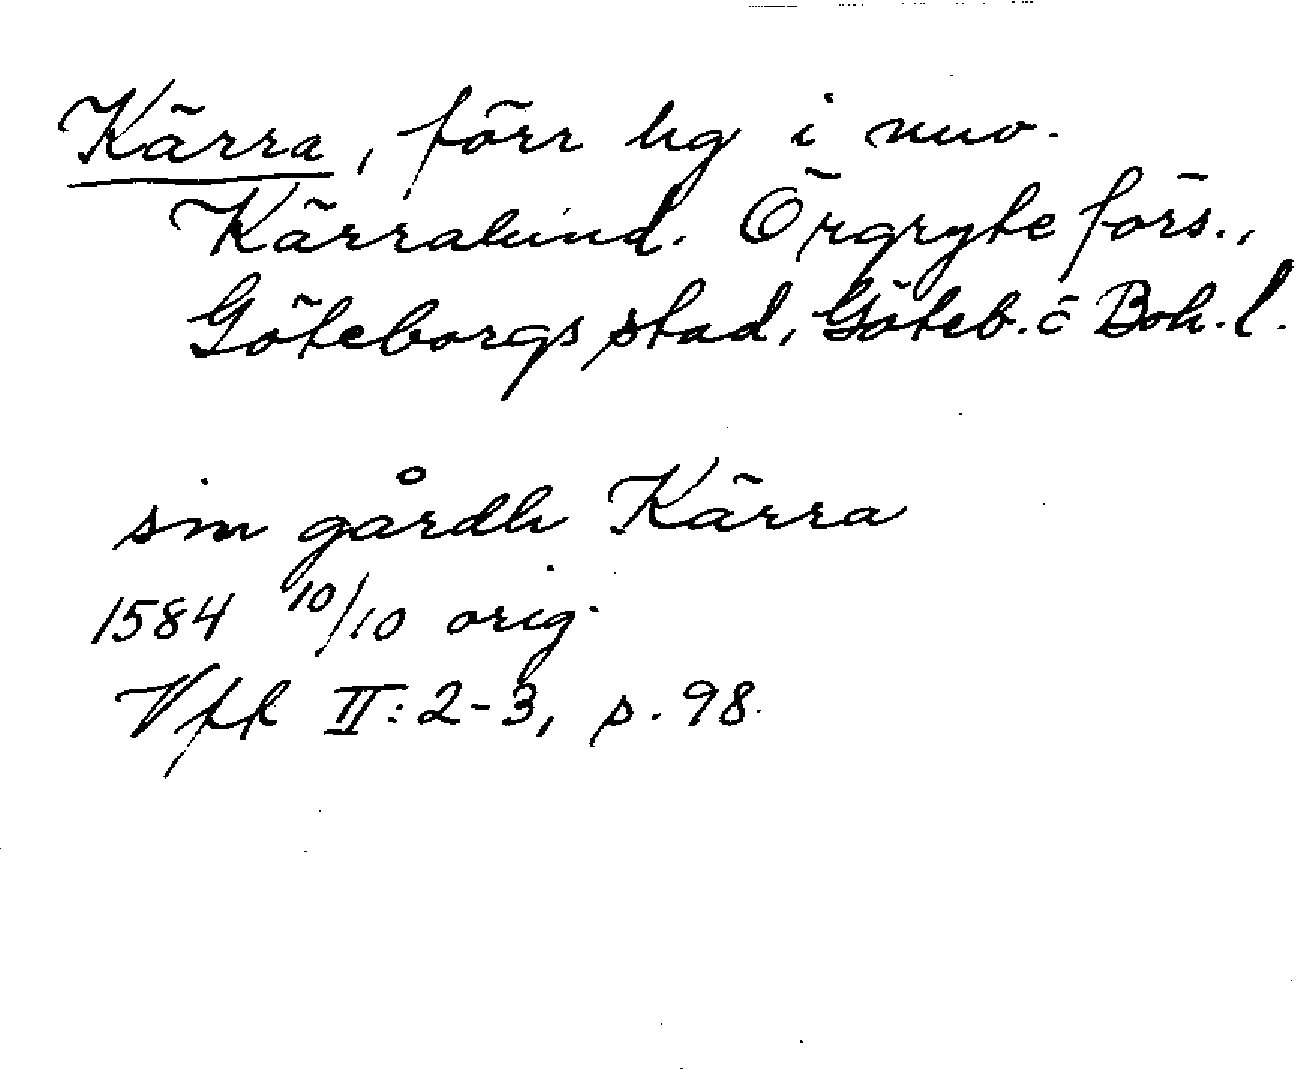 Kärra, förr hg i nuv.
Kärralund. Örgryte förs.,
Göteborgs stad, Göteb. o Boh. l.
sin gårdh Kärra
1584 10/10 orig.
Vfk II: 2-3, s. 98.